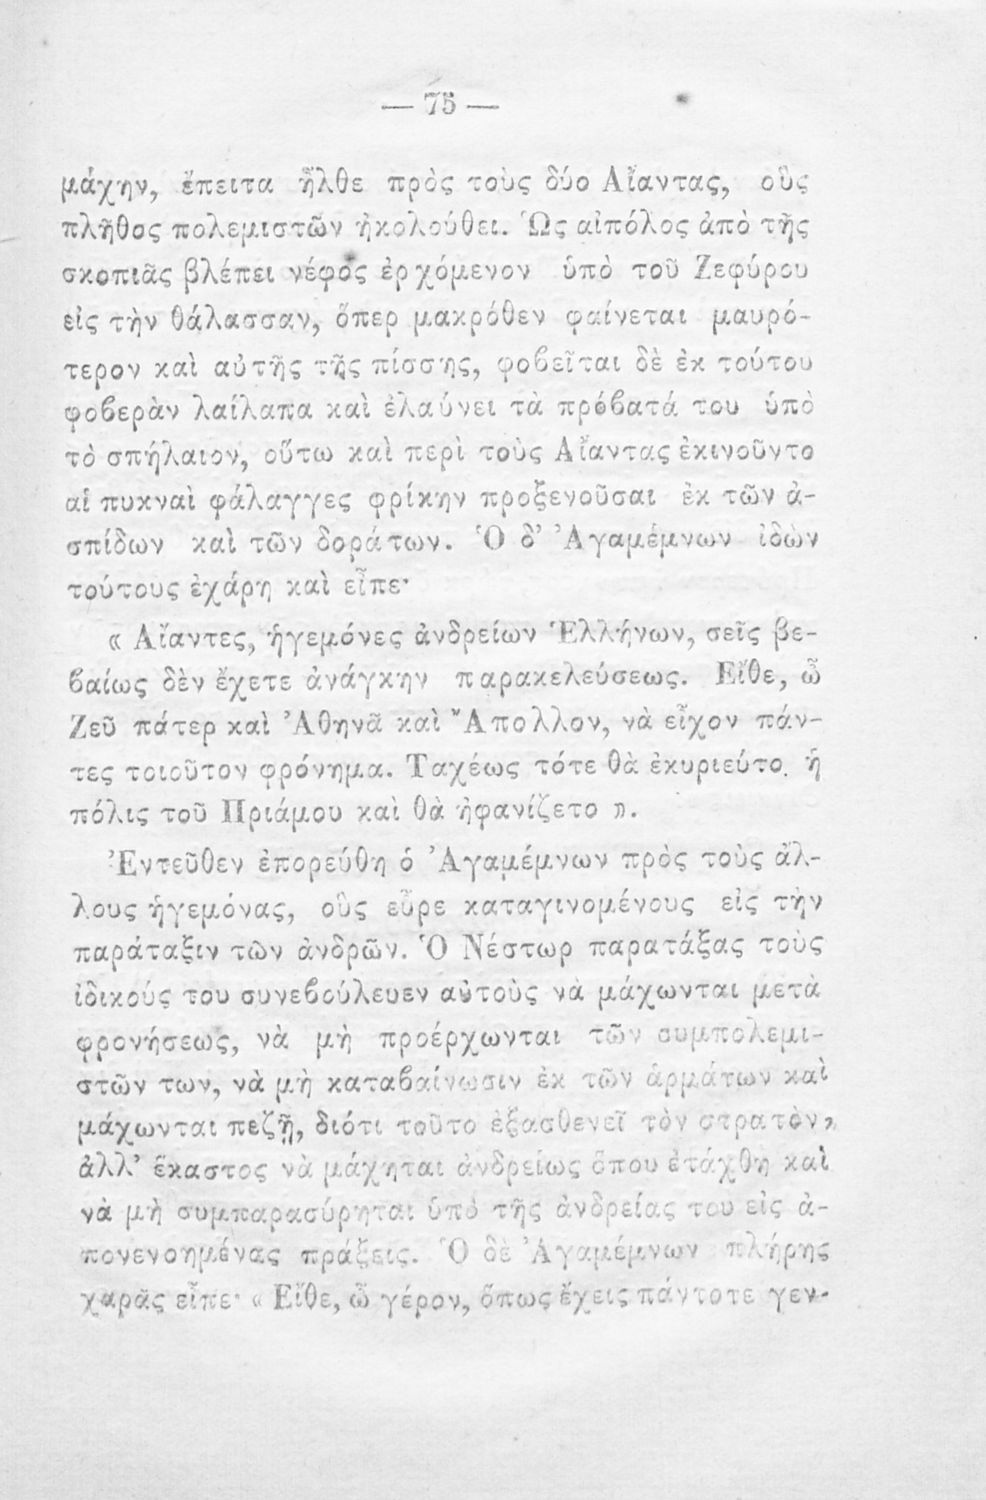 — 75 —
μάχην, ἔπειτα ἦλθε πρὸς τοὺς δύο Αἴαντας, οὓς
πλῆθος πολεμιστῶν ἠκολούθει. Ὡς αἰπόλος ἀπὸ τῆς
σκοπιᾶς βλέπει νέφος ἐρχόμενον ὑπὸ τοῦ Ζεφύρου
εἰς τὴν θάλασσαν, ὅπερ μακρόθεν φαίνεται μαυρό-
τερον καὶ αὐτῆς τῆς πίσσης, φοβεῖται δὲ ἐκ τούτου
φοβερὰν λαίλαπα καὶ ἐλαύνει τὰ πρόβατά του ὑπὸ
τὸ σπήλαιον, οὕτω καὶ περὶ τοὺς Αἴαντας ἐκινοῦντο
αἱ πυκναὶ φάλαγγες φρίκην προξενοῦσαι ἐκ τῶν ἀ-
σπίδων καὶ τῶν δοράτων. Ὁ δ' Ἀγαμέμνων ἰδὼν
τούτους ἐχάρη καὶ εἶπε·
« Αἴαντες, ἡγεμόνες ἀνδρείων Ἑλλήνων, σεῖς βε-
βαίως δὲν ἔχετε ἀνάγκην παρακελεύσεως. Εἴθε, ὦ
Ζεῦ πάτερ καὶ Ἀθηνᾶ καὶ Ἄπολλον, νὰ εἶχον πάν-
τες τοιοῦτον φρόνημα. Ταχέως τότε θὰ ἐκυριεύτο. ἡ
πόλις τοῦ Πριάμου καὶ θὰ ἠφανίζετο ».
Ἐντεῦθεν ἐπορεύθη ὁ Ἀγαμέμνων πρὸς τοὺς ἀλ-
λους ἡγεμόνας, οὓς εὗρε καταγινομένους εἰς τὴν
παράταξιν τῶν ἀνδρῶν. Ὁ Νέστωρ παρατάξας τοὺς
ἰδικούς του συνεβούλευεν αὐτοὺς νὰ μάχωνται μετὰ
φρονήσεως, νὰ μὴ προέρχωνται τῶν συμπολεμι-
στῶν των, νὰ μὴ καταβαίνωσιν ἐκ τῶν ἁρμάτων καὶ
μάχωνται πεζῇ, διότι τοῦτο ἐξασθενεῖ τὸν στρατὸν,
ἀλλ' ἕκαστος νὰ μάχηται ἀνδρείως ὅπου ἐτάχθη καὶ
νὰ μὴ συμπαρασύρηται ὑπὸ τῆς ἀνδρείας του εἰς ἀ-
πονενοημένας πράξεις. Ὁ δὲ Ἀγαμέμνων πλήρης
χαρᾶς εἶπε· « Εἴθε, ὦ γέρον, ὅπως ἔχεις πάντοτε γεν-